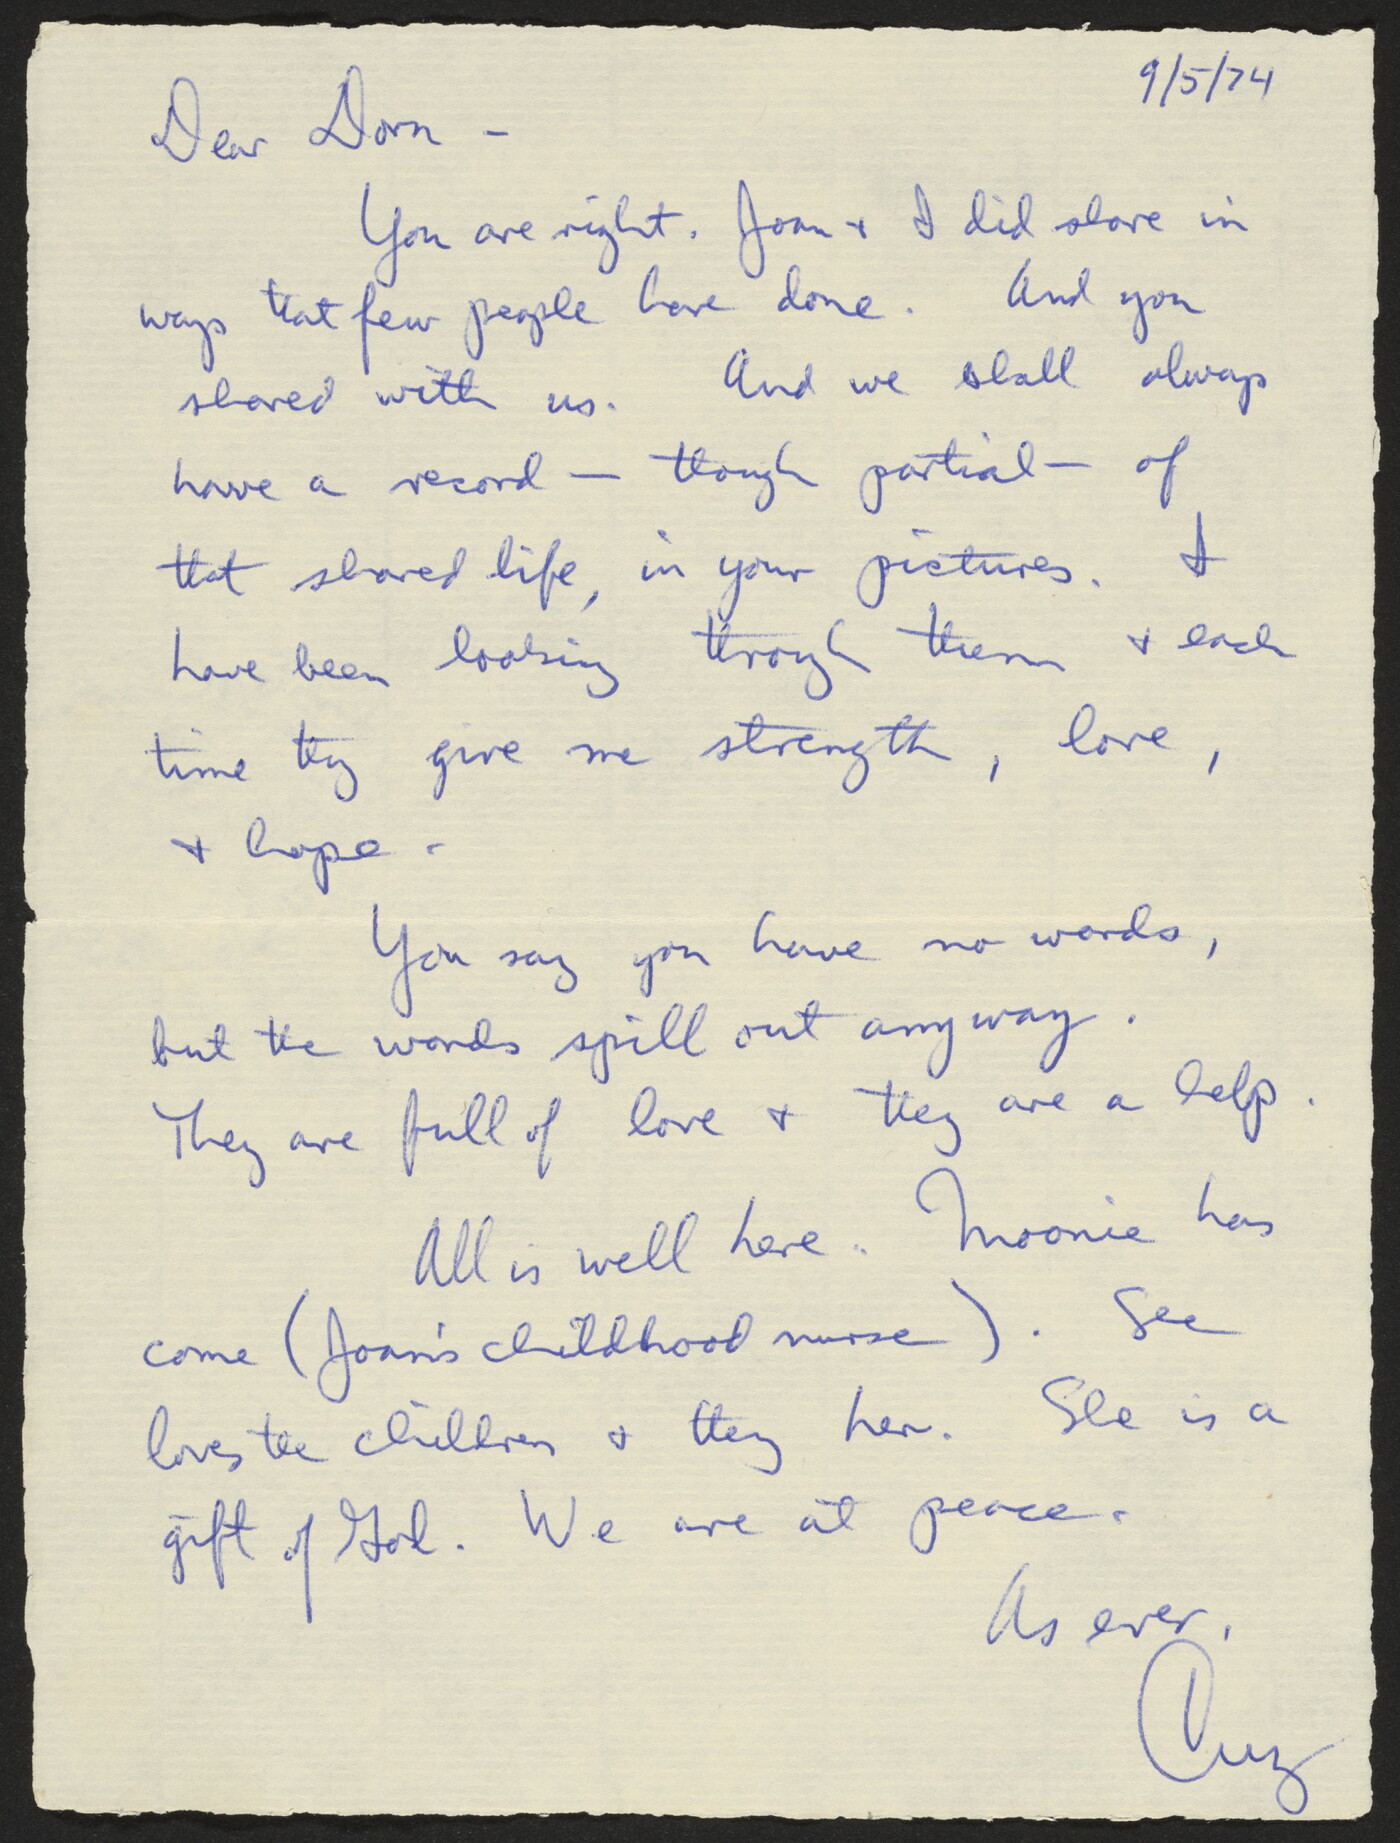 9/5/74
Dear Dorn -
You are right. Joan + I did share in
ways that few people have done. And you
shared with us. And we shall always
have a record — though partial — of
that shared life, in your pictures. I
have been looking through them + each
time they give me strength, love,
+ hope.
You say you have no words,
but the words spill out anyway.
They are full of love + they are a help.
All is well here. Moonie has
come (Joan's childhood nurse). She
loves the children + they her. She is a
gift of God. We are at peace.
As ever,